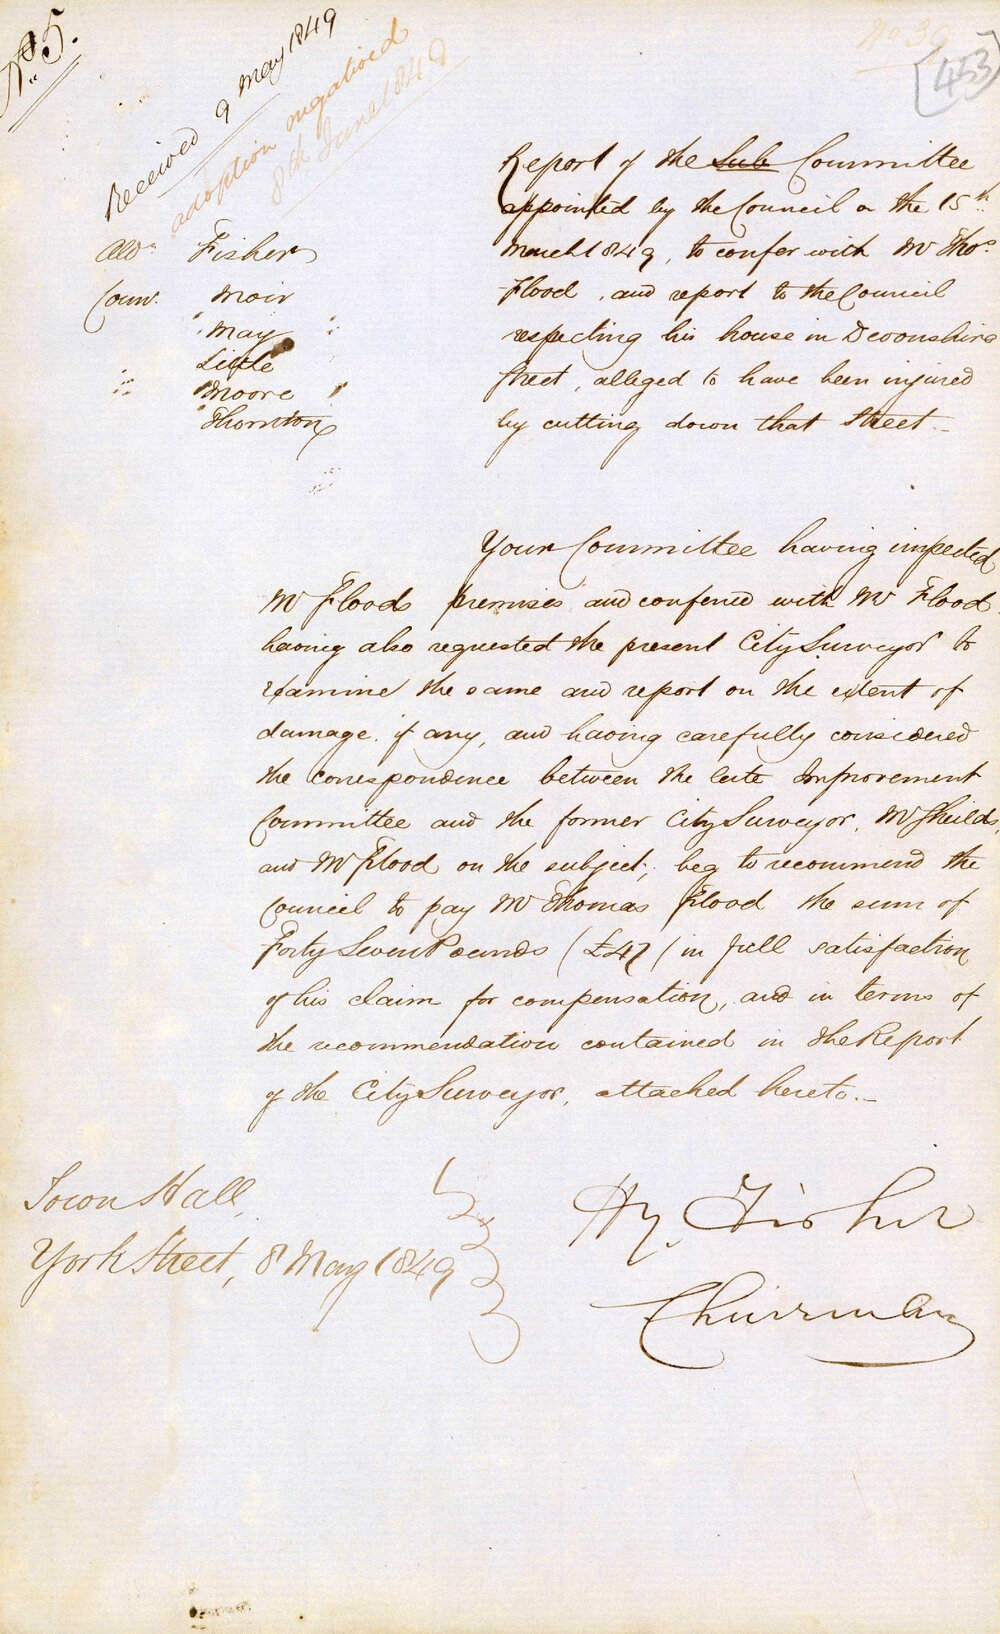 No. 5.
No 39
[453]
Received 9 May 1849
adoption negatived
8th June 1849
Ald.n Fisher
Coun.r Moir
" May "
Little
" Moore "
" Thornton
Report of the Sub Committee
appointed by the Council on the 15th
March 1849, to confer with Mr Thos
Flood, and report to the Council
respecting his house in Devonshire
Street, alleged to have been injured
by cutting down that Street.—
Your Committee having inspected
Mr Floods premises and conferred with Mr Flood
having also requested the present City Surveyor to
examine the same and report on the extent of
damage if any, and having carefully considered
the correspondence between the late Improvement
Committee and the former City Surveyor, Mr Sheilds,
and Mr Flood on the subject; beg to recommend the
Council to pay Mr Thomas Flood the sum of
Forty Seven Pounds (£47) in full satisfaction
of his claim for compensation, and in terms of
the recommendation contained in the Report
of the City Surveyor, attached hereto.—
Town Hall,
York Street, 8 May 1849
Hy. Fisher
Chairman